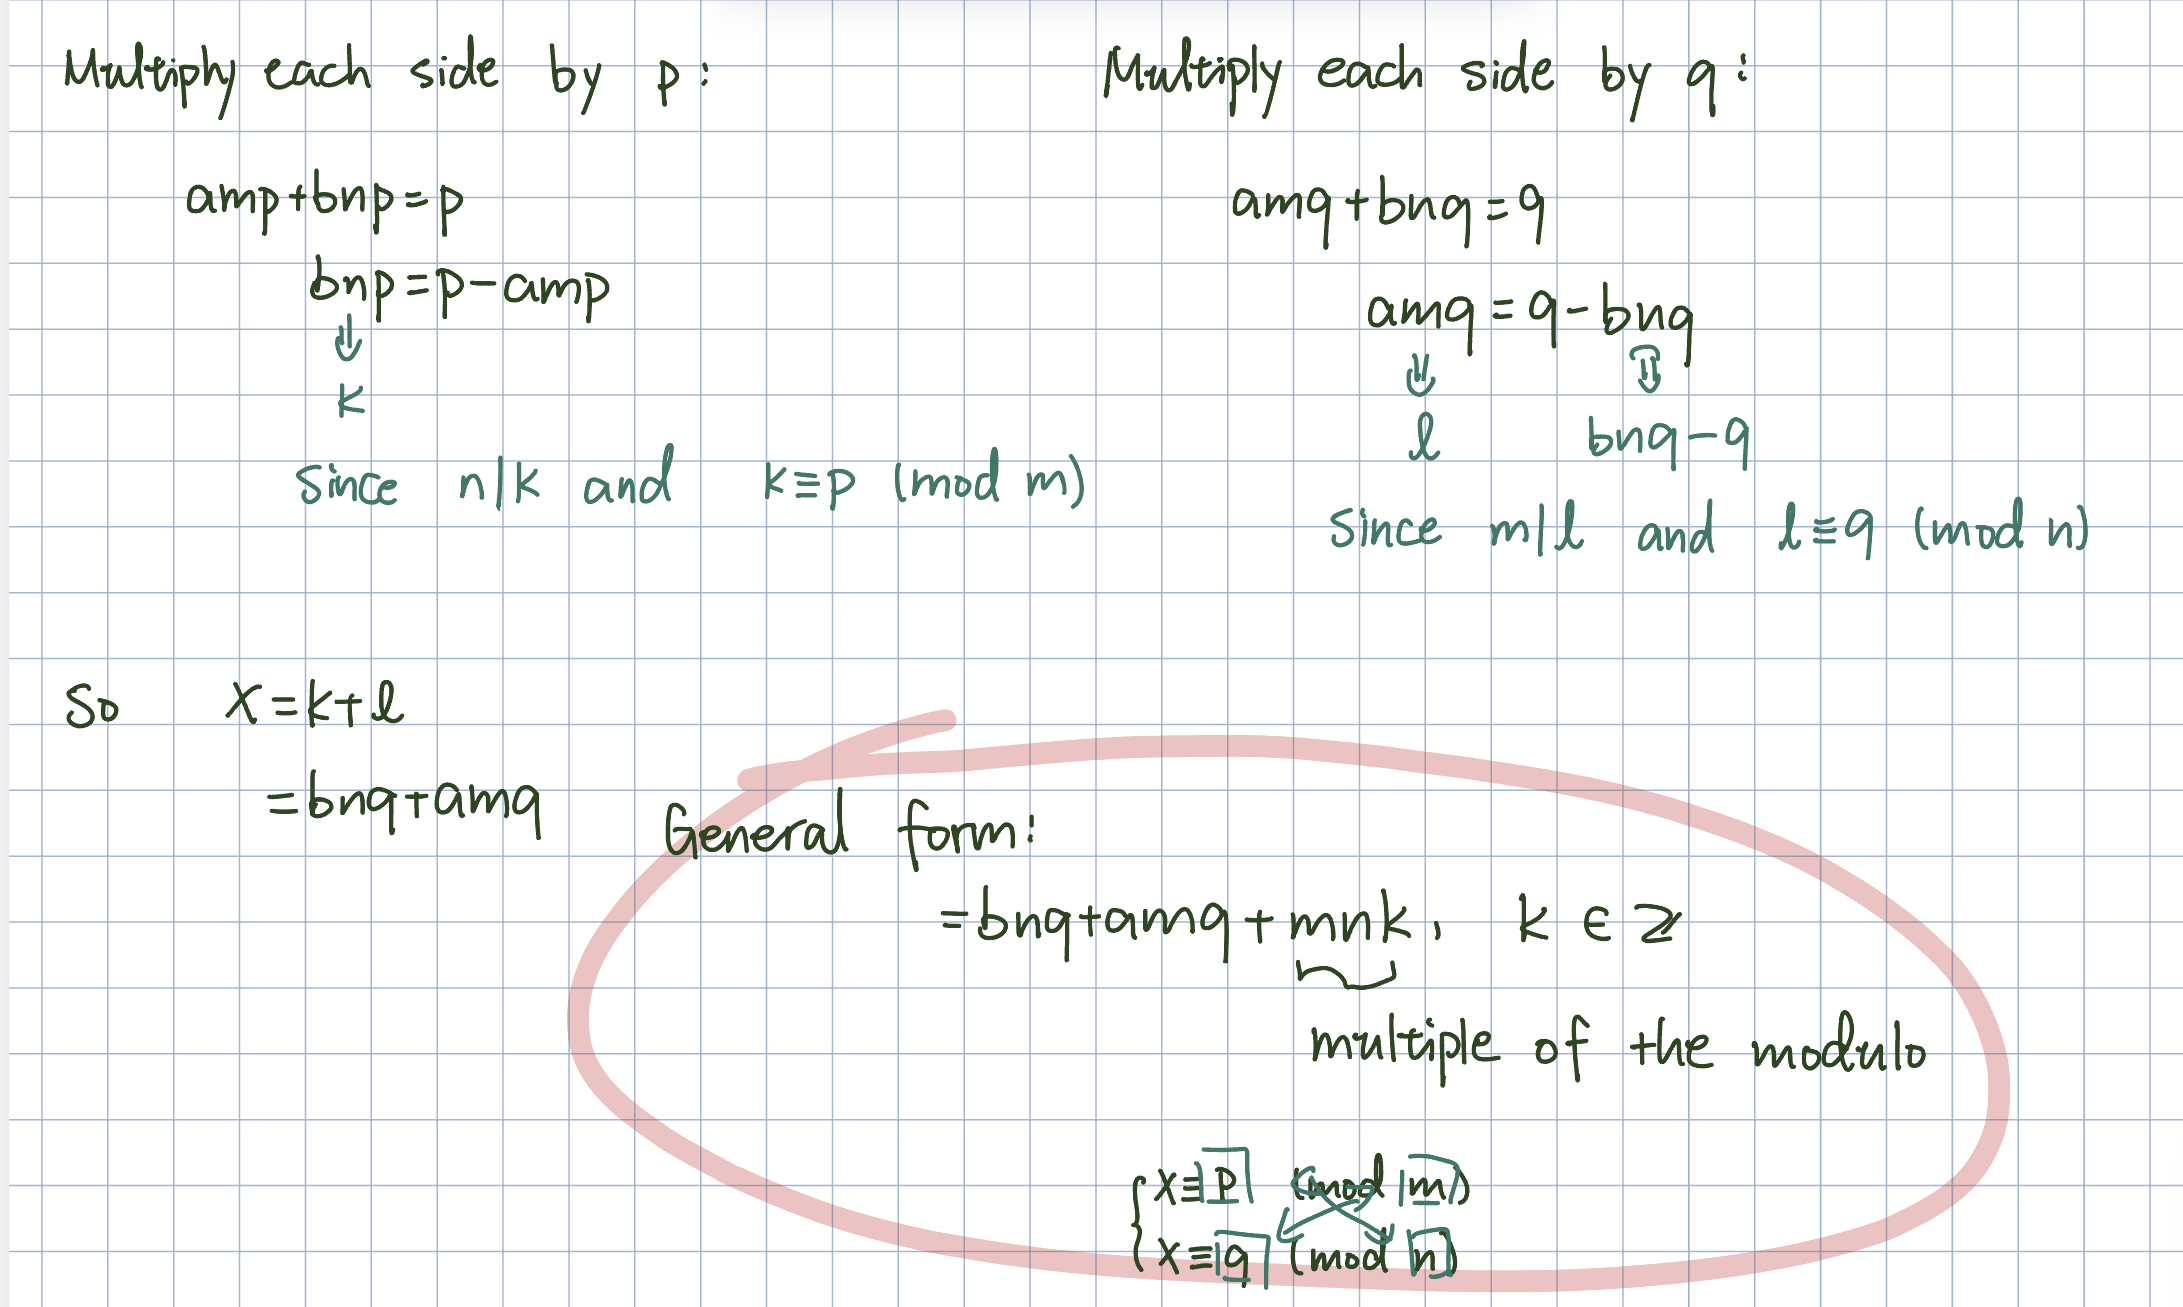 Multiply each side by p:
amp+bnp=p
bnp=p-amp
⇓
k
since n|k and k≡p (mod m)
Multiply each side by q:
amq+bnq=q
amq=q-bnq
⇓ ⇓
l bnq-q
since m|l and l≡q (mod n)
So X=k+l
=bnq+amq
General form:
=bnq+amq+mnk, k∈ℤ
multiple of the modulo
{x≡p (mod m)
x≡q (mod n)